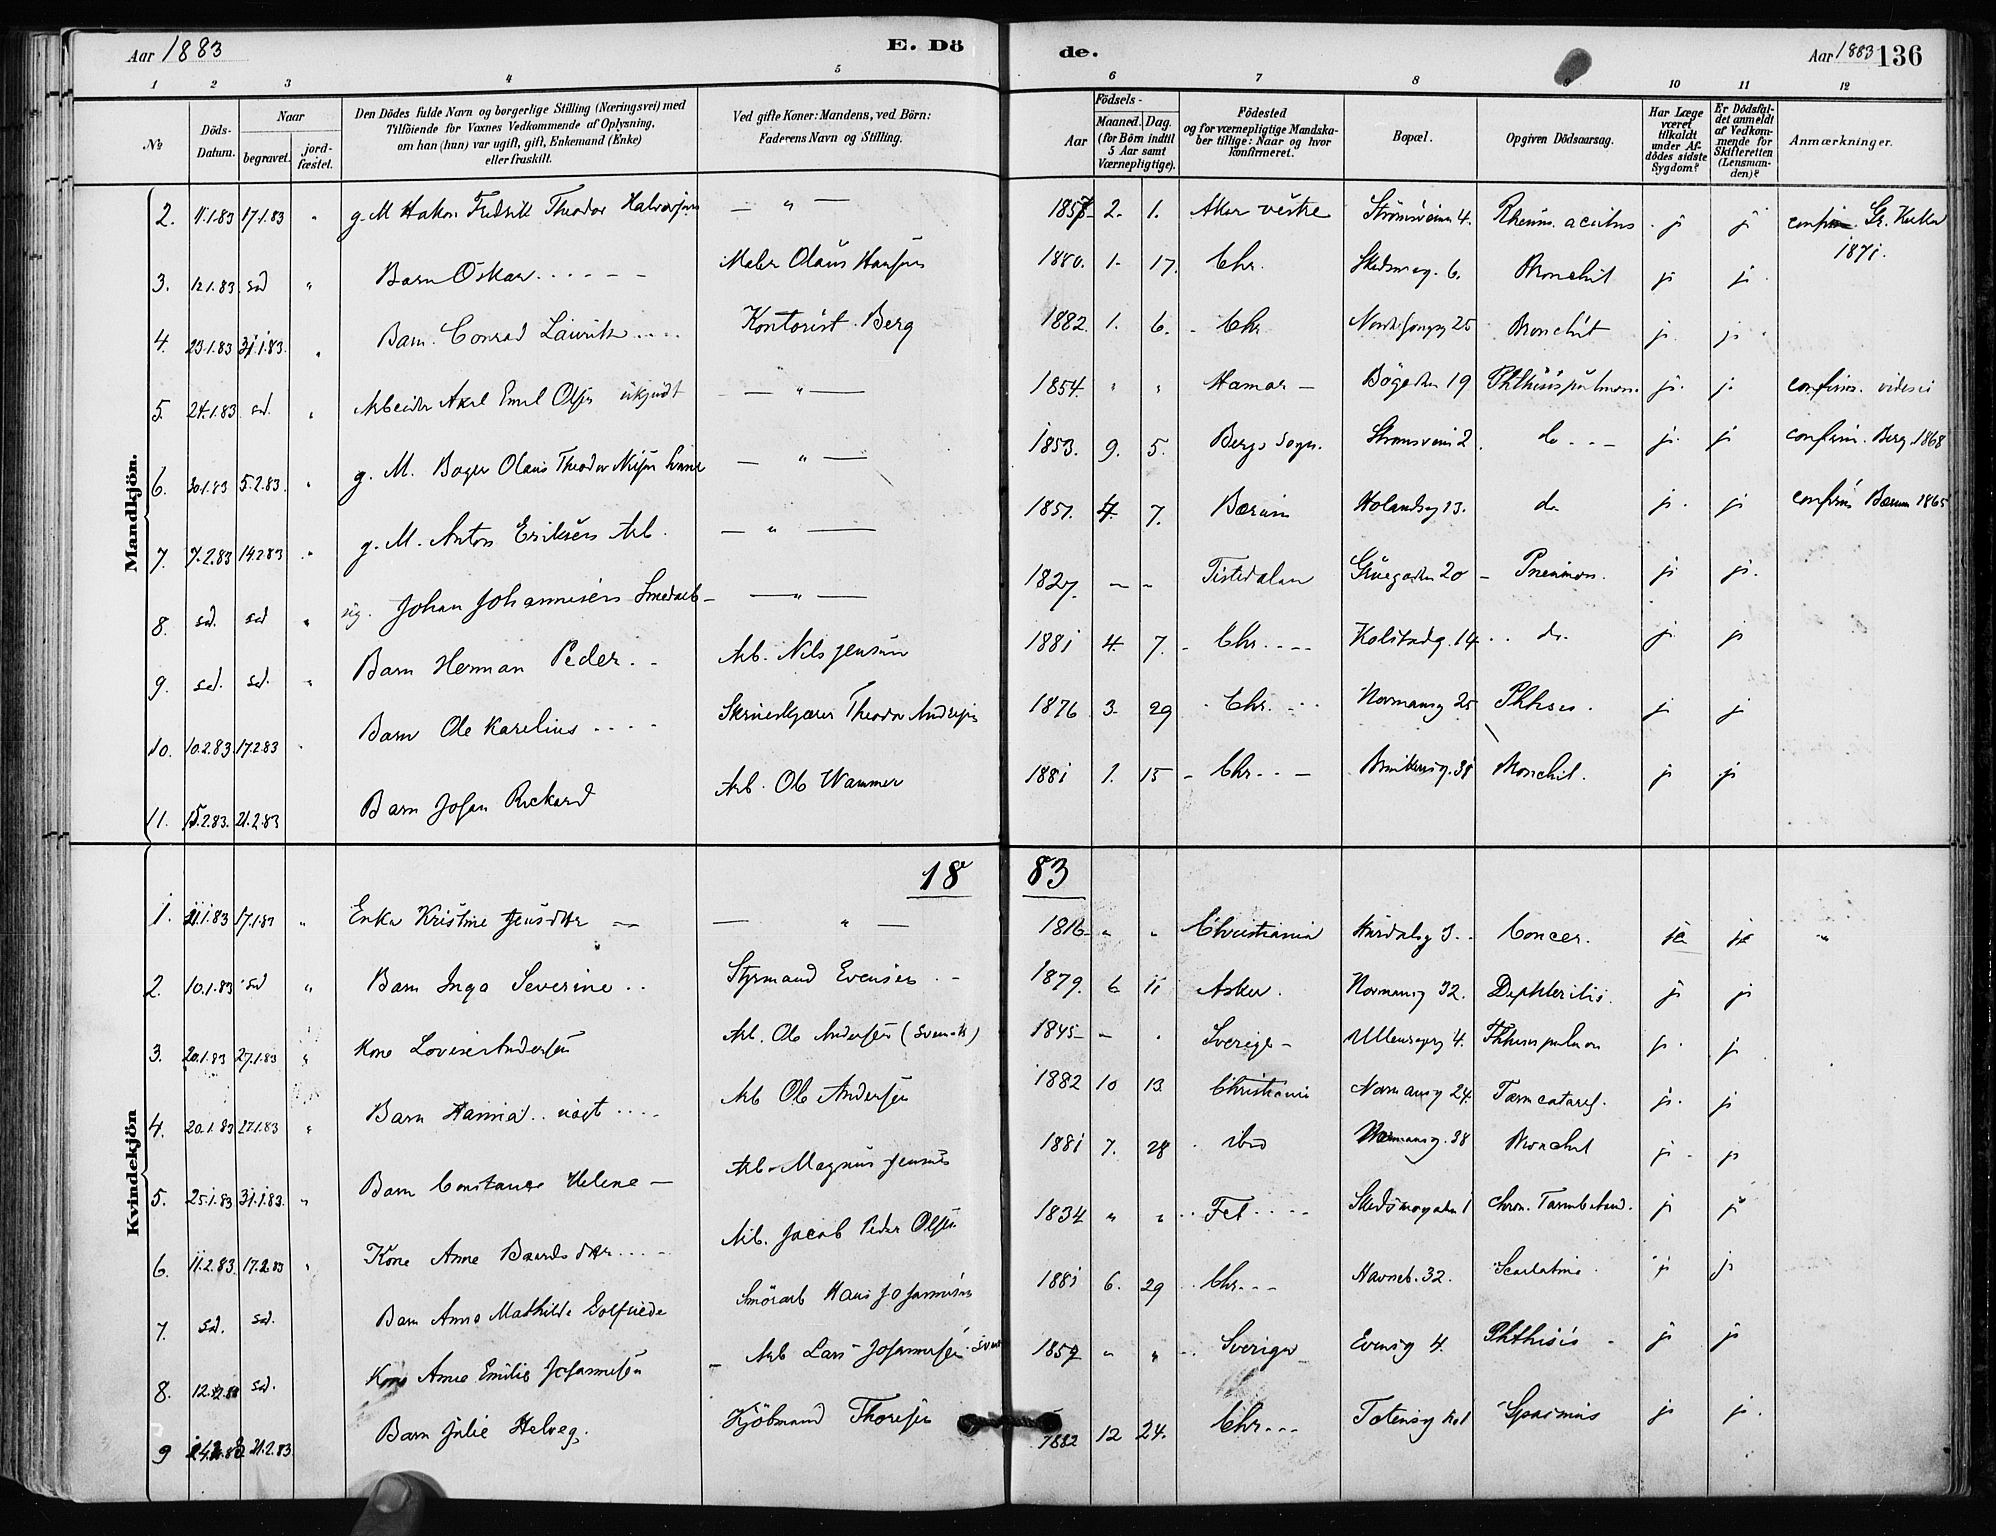 Aar 1883
E. Dö
de.
Aar 1883 136
1 2 3 4 5 6 7 8 9 10 11 12
№
Döds-Datum.
Naar
begravet.
jord-fæstet.
Den Dödes fulde Navn og borgerlige Stilling (Næringsvei) med
Tilföiende for Voxnes Vedkommende af Oplysning,
om han (hun) var ugift, gift, Enkemand (Enke)
eller fraskilt.
Ved gifte Koner: Mandens, ved Börn:
Faderens Navn og Stilling.
Födsels-
Aar
Maaned. Dag.
(for Börn indtil
5 Aar samt
Værnepligtige).
Födested
og for værnepligtige Mandska-
ber tillige: Naar og hvor
konfirmeret.
Bopæl.
Opgiven Dödsaarsag.
Har Læge
været
tilkaldt
under Af-
dödes sidste
Sygdom?
Er Dödsfal-
det anmeldt
af Vedkom-
mende for
Skifteretten
(Lensman-
den)?
Anmærkninger.
Mandkjön.
2. 11.1.83 17.1.83 " g. M Hakon Fredrik Theodor Halvorsen — " — 1857 2. 1. Aker vestre Strömsveien 4. Rheum. acutus ja ja 1871.
3. 12.1.83 sd " Barn Oskar Maler Olaus Hansen 1880. 1. 17. Chr. Skedsmog. 6. Bronchit ja ja
4. 23.1.83 31.1.83. " Barn Conrad Lauritz Kontorist Berg 1882. 1. 6. Chr. 25 Bronchit ja ja
5. 24.1.83 sd. " Arbeider Axel Emil Olsen — " — 1854. " " Hamar — Bögaden 19 Phthisis pulmon. ja. ja confirm.
6. 30.1.83 5.2.83. " g. M. Bager Olaus Theodor — " — 1853. 9. 5. Bergs Sogn. Strömsveien 2. do ja ja confirm. Berg 1868
7. 7.2.83 14.2.83 " g. M. Anton Eriksen Arb. — " — 1851. 4. 7. Bærum Holandsg 13. do ja. ja confirm. Bærum 1865
8. sd. sd " Johan Johannesen — " — 1827. — — Tistedalen Grüegaden 20 Pneumon. ja ja.
9. sd. sd. " Barn Herman Peder Arb. Nils Jensen 1881 4. 7. Chr. Kolstadg. 14 do ja ja
10. 10.2.83. 17.2.83 Barn Ole Karelius Theodor Andresen 1876 3. 29 Chr. Normansg 25 Phthisis. ja ja
11. 15.2.83. 21.2.83 Barn Johan Rickard Arb. Ole Wammer 1881 1. 15 Chr. 38 Bronchit. ja ja
1883
Kvindekjön
1. 11.1.83 17.1.83 " Enke Kristine Jensdtter — " — 1816 " " Christiania Hurdalsg 3. Cancer. ja ja "
2. 10.1.83 sd " Barn Inga Severine Styrmand Evensen 1879. 6 11 Asker. Normansg 32. Diphteritis. ja ja
3. 20.1.83 27.1.83 " Kone Lovise Andersen Arb. Ole Andersen (svensk) 1845 — Sverige — Ullensagerg 4. Phthisis pulmon ja. ja
4. 20.1.83 27.1.83 " Barn Hanna Arb Ole Andersen 1882 10 13 Christiania Normansg 24. Tarmcatarrh. ja. ja
5. 25.1.83 31.1.83. " Barn Constance Helene — Arb. Magnus Jensen 1881 7. 28 ibid Normansg. 38 Bronchit ja. ja
6. 11.2.83. 17.2.83 " Kone Anne Baardsdtter Arb. Jacob Peder Olsen 1834 " " Fet Skedsmogaden 1 chron. ja ja
7. sd. sd. Barn Anna Mathilde Golfriede Hans Johannesen 1881 6. 29 Chr. Havneb. 32. Scarlatina ja ja
8. sd. Kone Anne Emilie Johannesen Arb Lars Johannesen " " Sverige Evensg 4. Phthisis ja ja
9 21.2.83 Barn Julie Helveg. Kjöbmand Thoresen 1882 12 24. Chr. Totensg Spasmus ja ja.